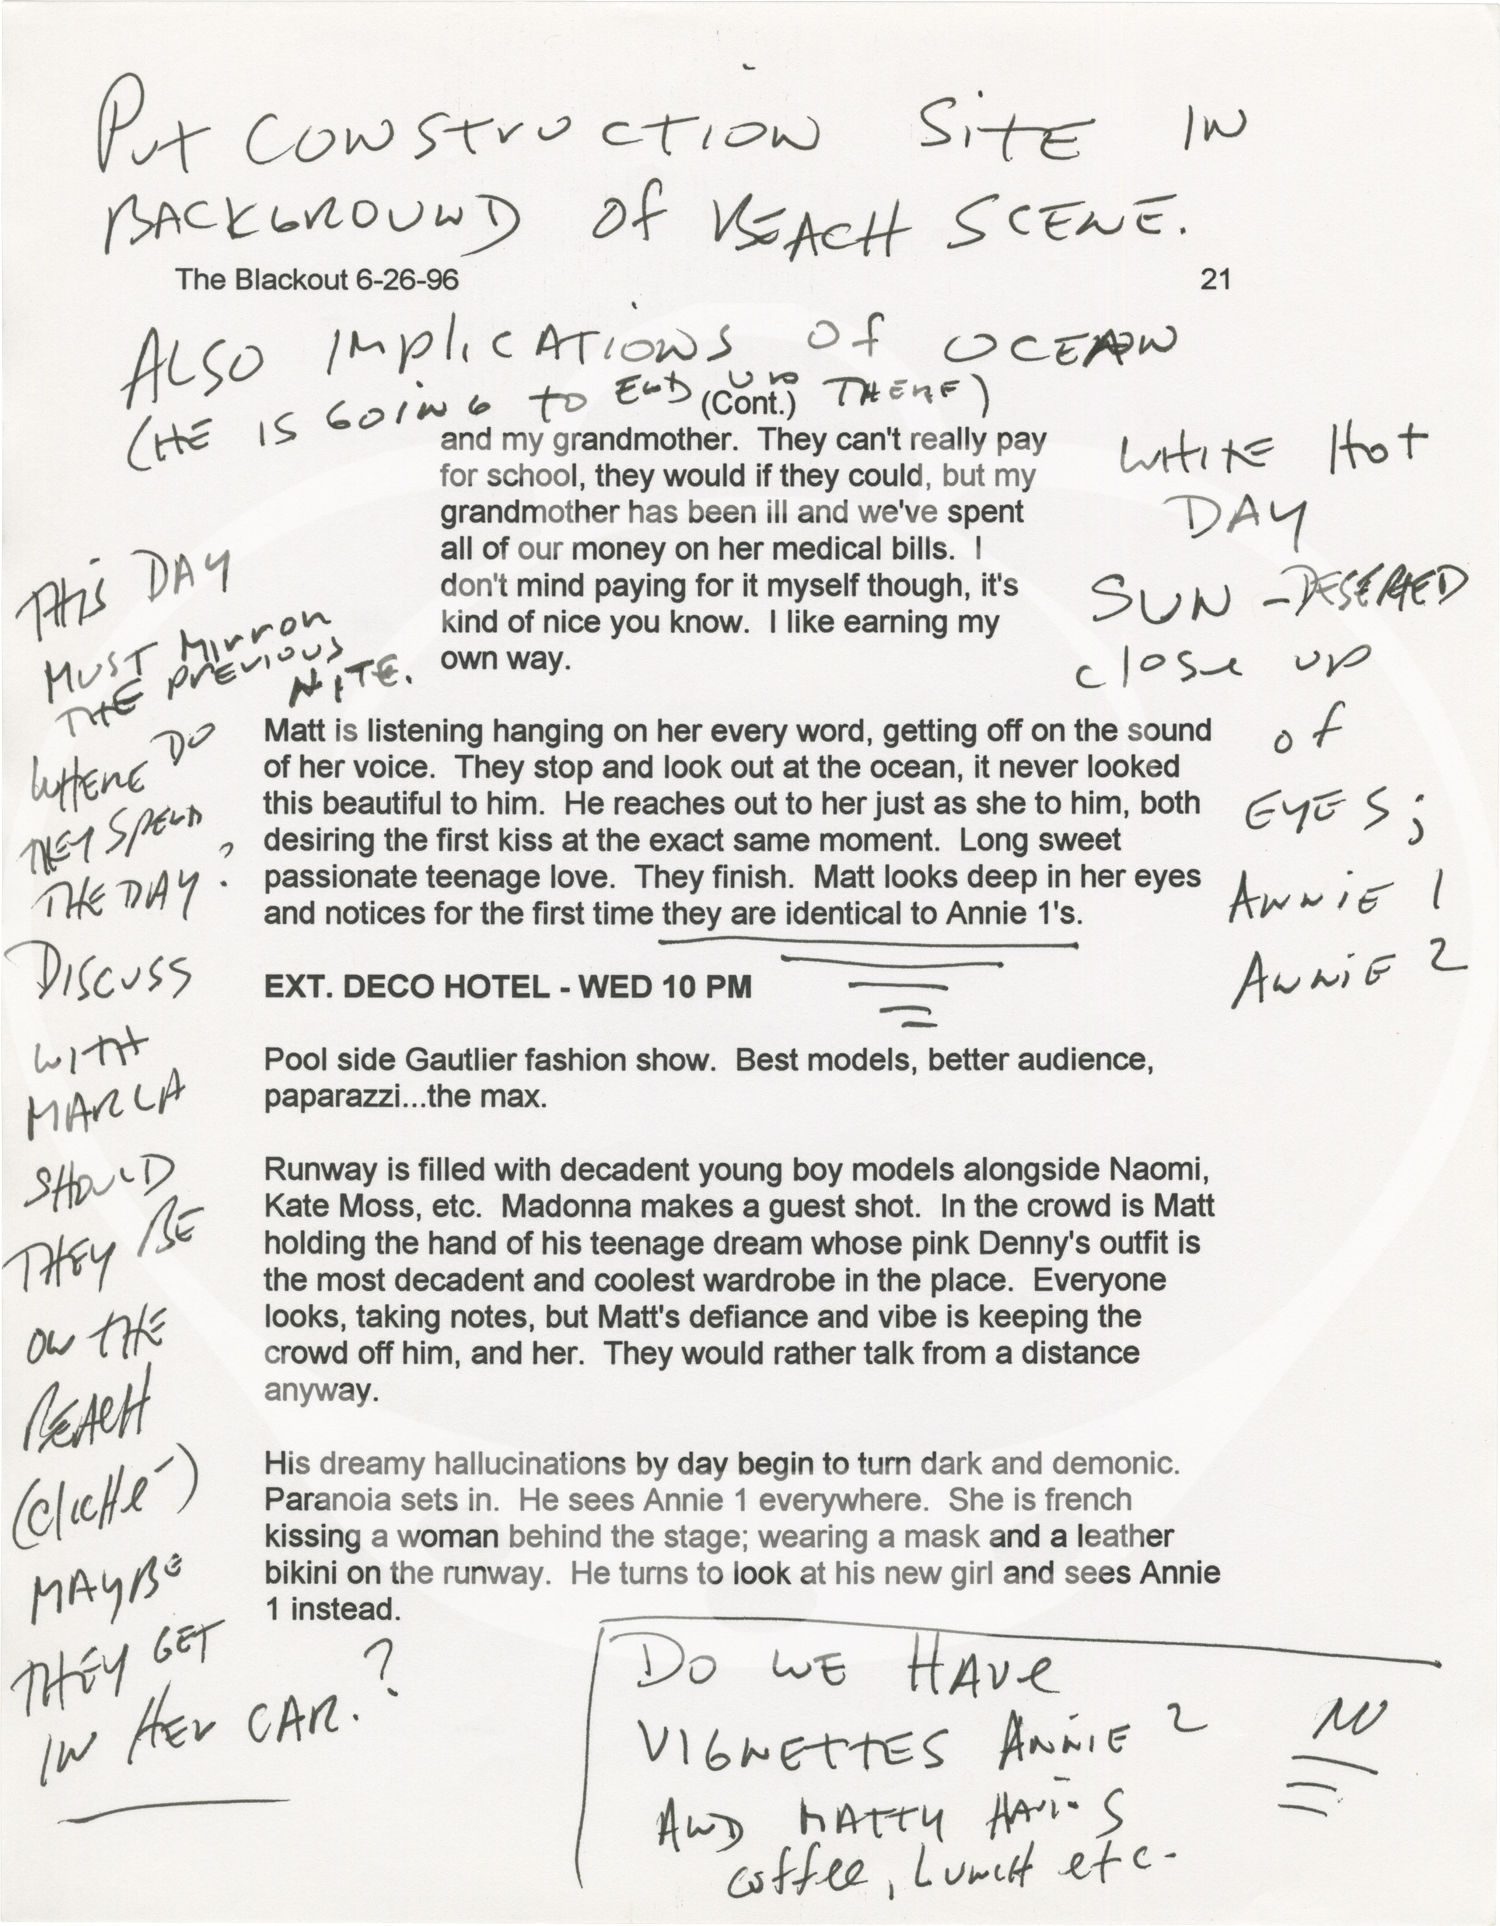 PUT CONSTRUCTION SITE IN
BACKGROUND Of BEACH SCENE.
The Blackout 6-26-96 21
ALSO IMPLICATIONS Of OCEAN
(HE IS GOING TO END UP THERE)
(Cont.)
and my grandmother. They can't really pay
for school, they would if they could, but my
grandmother has been ill and we've spent
all of our money on her medical bills. I
don't mind paying for it myself though, it's
kind of nice you know. I like earning my
own way.
WHITE HOT
DAY
SUN - DESERTED
close up
of
EYES;
ANNIE 1
ANNIE 2
THIS DAY
MUST MIRROR
THE PREVIOUS
NITE.
WHERE DO
THEY SPEND
THE DAY?
DISCUSS
WITH
MARLA
SHOULD
THEY BE
ON THE
BEACH
(cliche)
MAYBE
THEY GET
IN HER CAR.?
Matt is listening hanging on her every word, getting off on the sound
of her voice. They stop and look out at the ocean, it never looked
this beautiful to him. He reaches out to her just as she to him, both
desiring the first kiss at the exact same moment. Long sweet
passionate teenage love. They finish. Matt looks deep in her eyes
and notices for the first time they are identical to Annie 1's.
EXT. DECO HOTEL - WED 10 PM
Pool side Gautlier fashion show. Best models, better audience,
paparazzi...the max.
Runway is filled with decadent young boy models alongside Naomi,
Kate Moss, etc. Madonna makes a guest shot. In the crowd is Matt
holding the hand of his teenage dream whose pink Denny's outfit is
the most decadent and coolest wardrobe in the place. Everyone
looks, taking notes, but Matt's defiance and vibe is keeping the
crowd off him, and her. They would rather talk from a distance
anyway.
His dreamy hallucinations by day begin to turn dark and demonic.
Paranoia sets in. He sees Annie 1 everywhere. She is french
kissing a woman behind the stage; wearing a mask and a leather
bikini on the runway. He turns to look at his new girl and sees Annie
1 instead.
DO WE HAVE
VIGNETTES ANNIE 2
AND MATTY
coffee, LUNCH etc.
NO